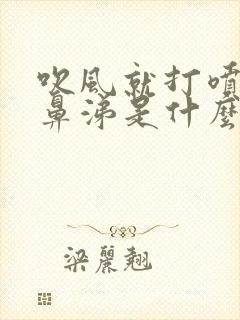 吹風就打噴
鼻涕是什麼
梁麗翹